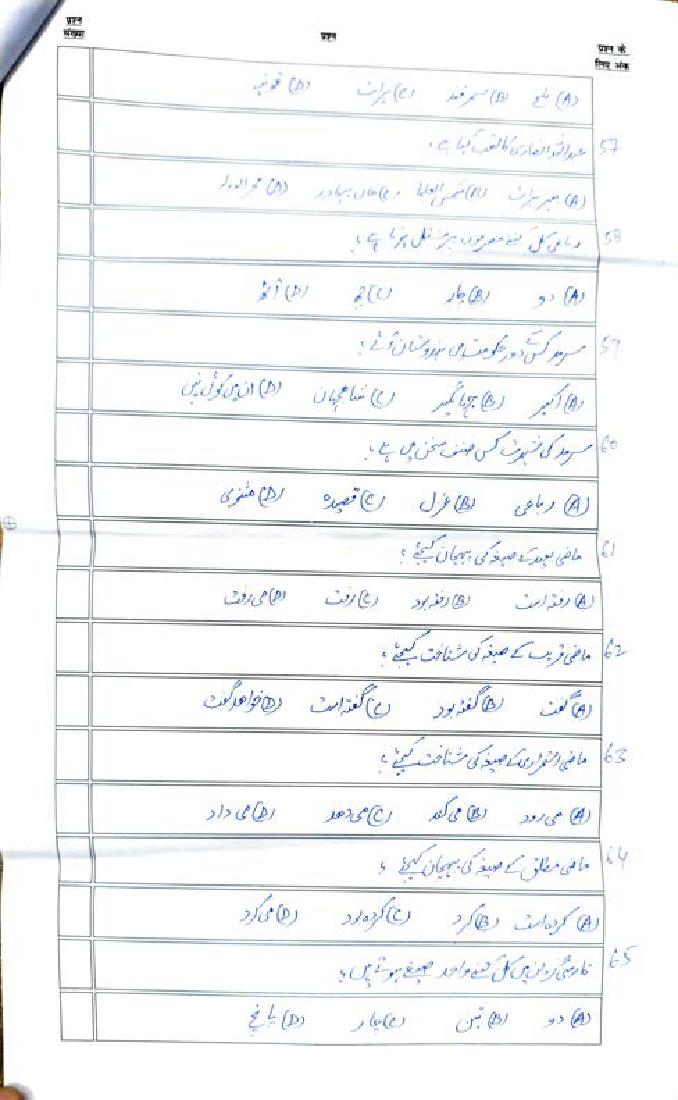 प्रश्न संख्या
प्रश्न
प्रश्न के लिए अंक
(A) بلخ (B) سمرقند (C) ہرات (D) قونیہ
57 عبداللہ انصاری کا لقب کیا ہے؟
(A) پیر ہرات (B) شمس العلما (C) خان بہادر (D)
58 رباعی کل کتنے مصرعوں پر مشتمل ہوتا ہے؟
(A) دو (B) چار (C) چھ (D) آٹھ
59 سرمد کس کے دور حکومت میں ہندوستان آئے؟
(A) اکبر (B) جہانگیر (C) شاہجہاں (D) ان میں کوئی نہیں
60 سرمد کی شہرت کس صنف سخن میں ہے؟
(A) رباعی (B) غزل (C) قصیدہ (D) مثنوی
61 ماضی بعید کے صیغہ کی پہچان کیجئے؟
(A) رفتہ است (B) رفتہ بود (C) رفت (D) می رفت
62 ماضی قریب کے صیغہ کی شناخت کیجئے؟
(A) گفت (B) گفتہ بود (C) گفتہ است (D) خواهد گفت
63 ماضی استمراری کے صیغہ کی شناخت کیجئے؟
(A) می رود (B) می کند (C) می دهد (D) می داد
64 ماضی مطلق کے صیغہ کی پہچان کیجئے؟
(A) کردہ است (B) کرد (C) کردہ بود (D) می کرد
65 فارسی گردان میں کل کتنے واحد صیغے ہوتے ہیں؟
(A) دو (B) تین (C) چار (D) پانچ